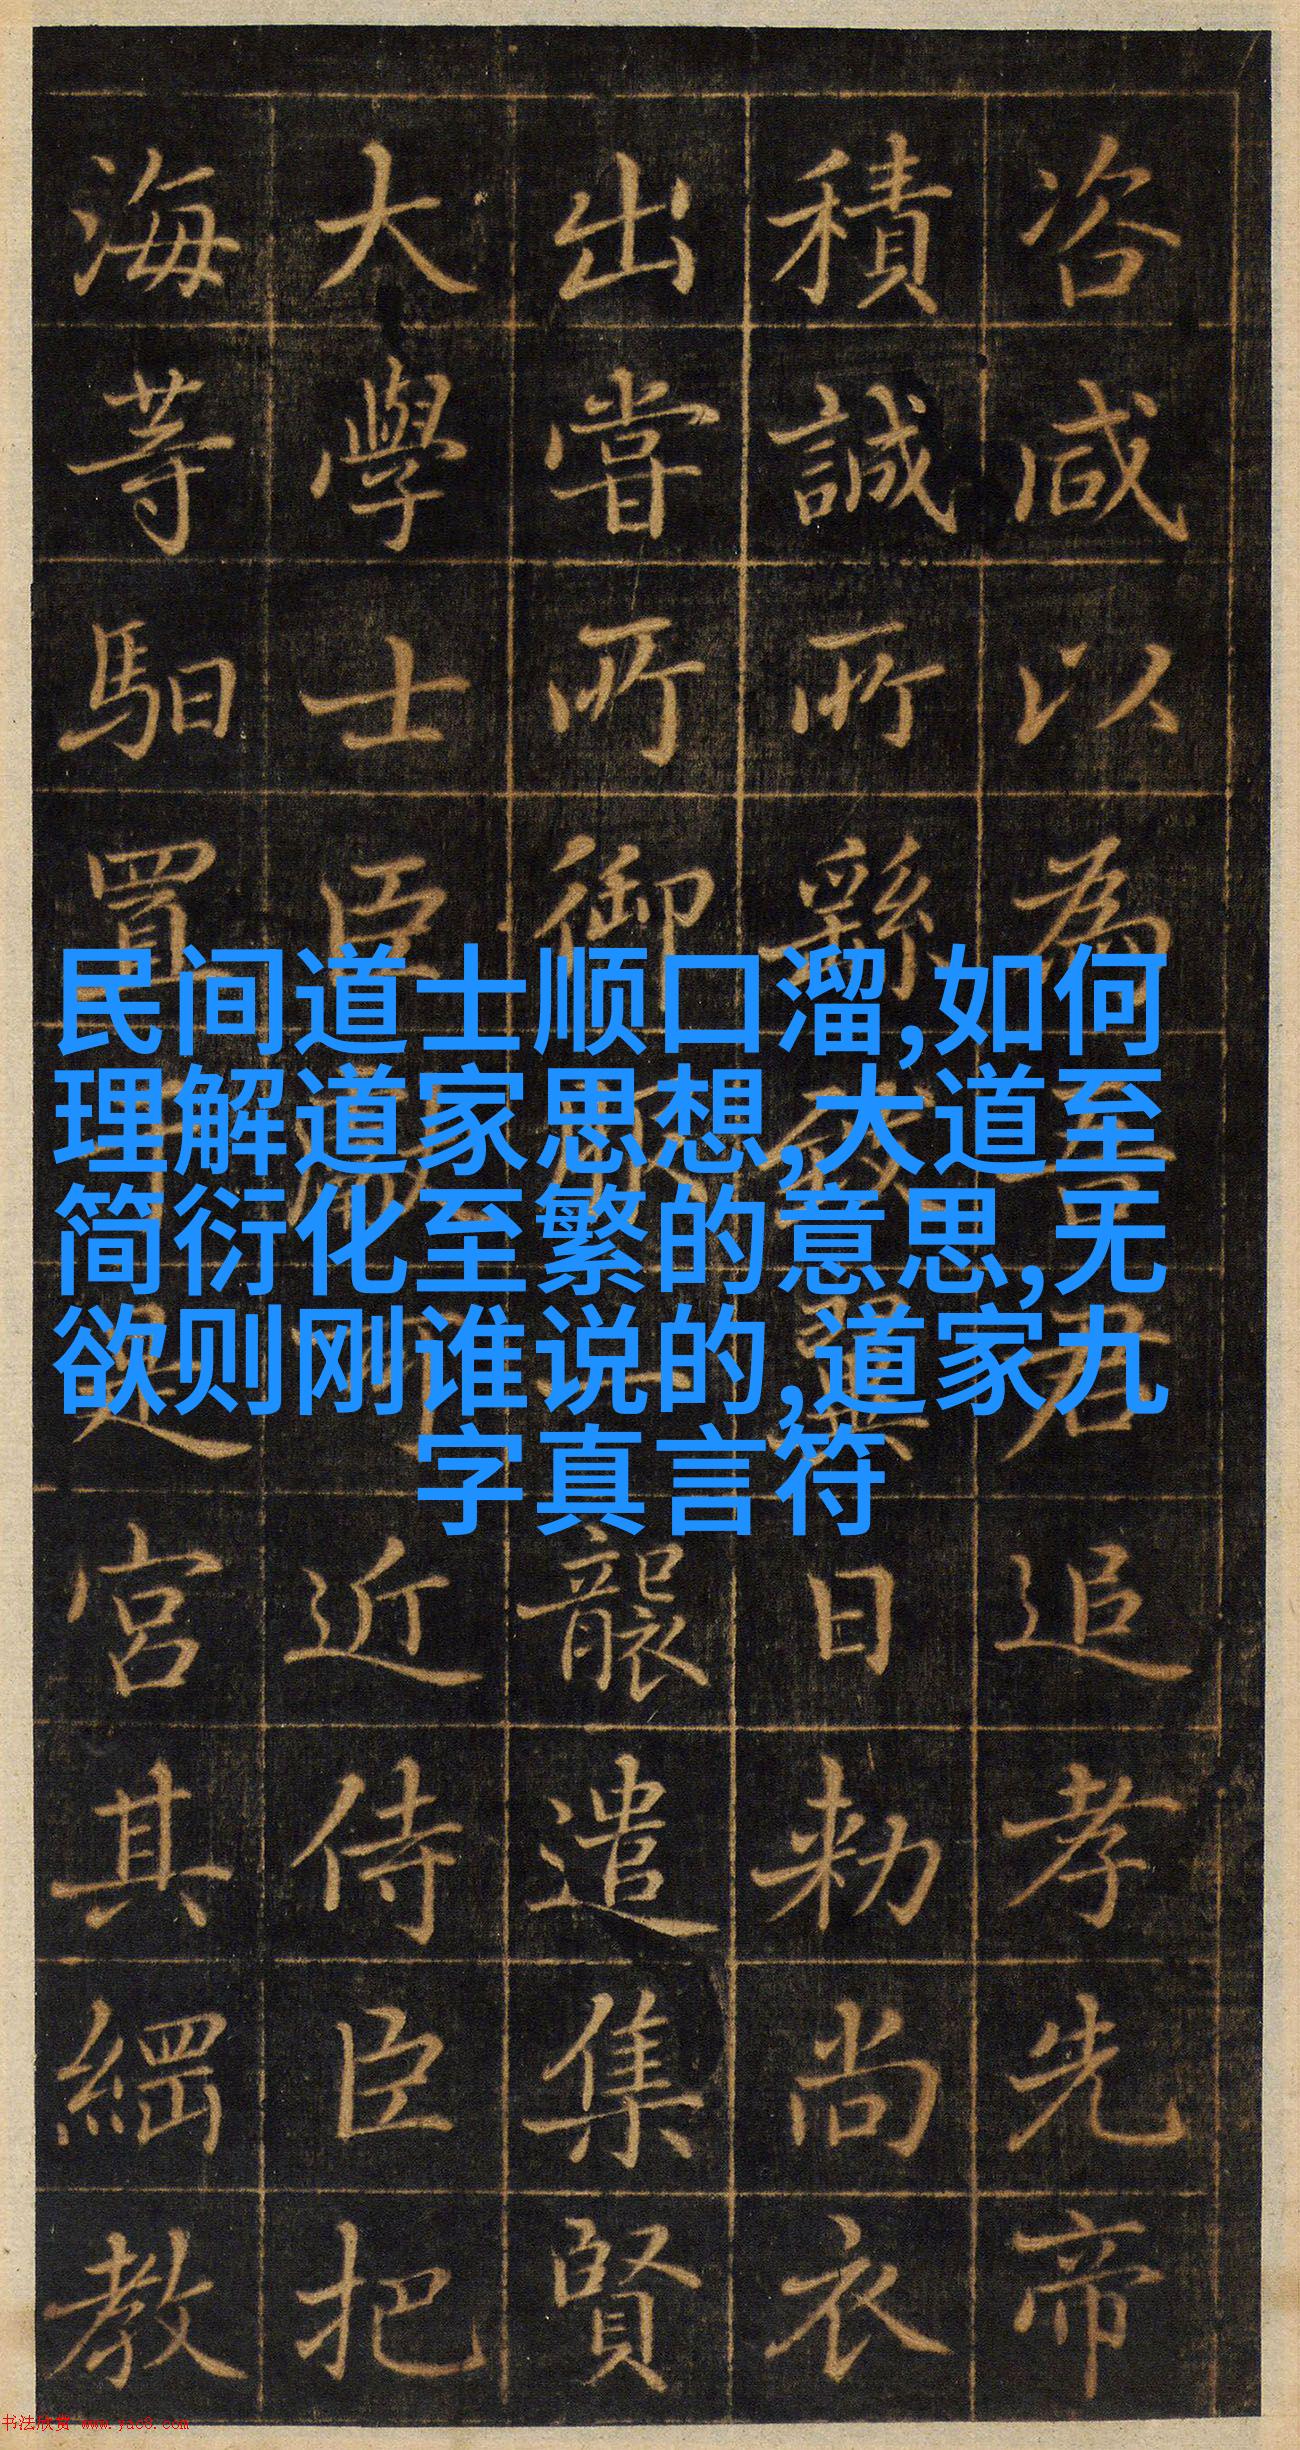 咨咸以為吾君追孝先帝
積誠所繇致翼日勑尚衣
出嘗所御服一襲遣集賢
大學士臣近侍臣把
海等馹置是宮其綱教
民间道士顺口溜,如何
理解道家思想,大道至
简衍化至繁的意思,无
欲则刚谁说的,道家九
字真言符
书法欣赏 www.yac8.com